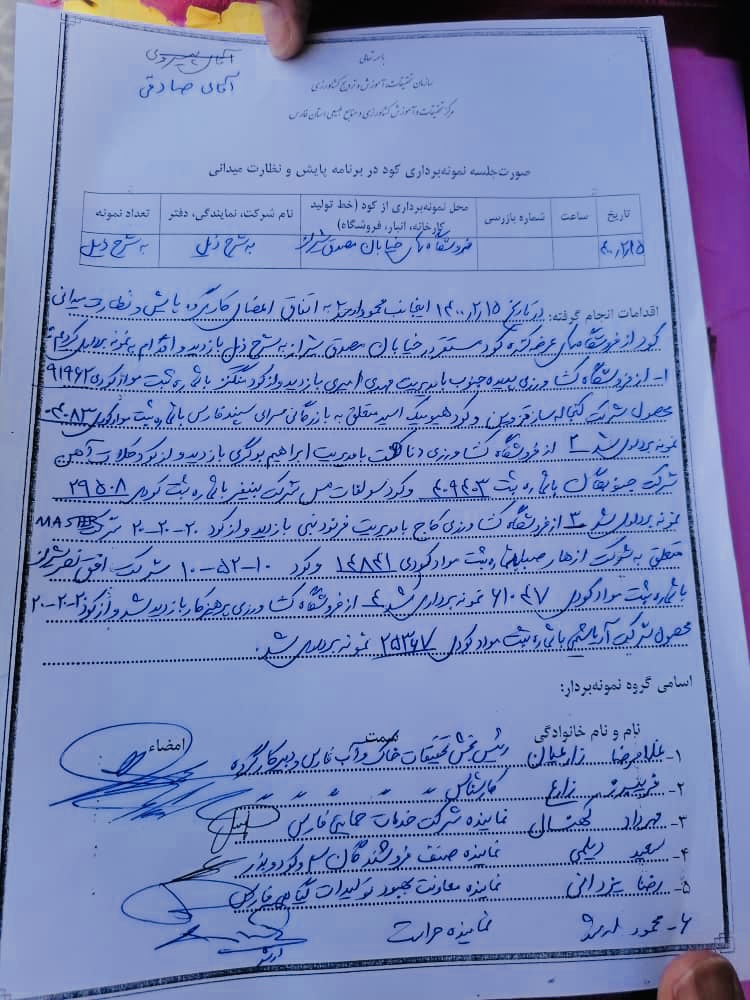 آقای صادقی
باسمه تعالی
سازمان تحقیقات، آموزش و ترویج کشاورزی
مرکز تحقیقات و آموزش کشاورزی و منابع طبیعی استان فارس
صورت‌جلسه نمونه‌برداری کود در برنامه پایش و نظارت میدانی
تاریخ ساعت شماره بازرسی محل نمونه‌برداری از کود (خط تولید کارخانه، انبار، فروشگاه) نام شرکت، نمایندگی، دفتر تعداد نمونه
۴۰۰/۲/۱۵ فروشگاه های خیابان مصدق شیراز به شرح ذیل به شرح ذیل
اقدامات انجام گرفته: در تاریخ ۱۴۰۰/۲/۱۵ اینجانب به اتفاق اعضای کارگروه پایش و نظارت میدانی
کود از فروشگاه های عرضه کننده کود مستقر در خیابان مصدق شیراز به شرح ذیل بازدید و اقدام به نمونه برداری
۱- از فروشگاه کشاورزی جنوب با مدیریت مهدی امیری بازدید و از کود منگنز با شماره ثبت مواد کودی ۹۱۹۶۲
محصول شرکت قزوین و کود هیومیک اسید متعلق به بازرگانی سپند فارس با شماره ثبت مواد کودی
نمونه برداری شد ۲- از فروشگاه کشاورزی با مدیریت ابراهیم بازدید و از کود کلات آهن
شرکت با شماره ثبت ۴۰۹۴۰۳ و کود سولفات مس شرکت با شماره ثبت کودی ۲۹۵۰۸
نمونه برداری شد ۳- از فروشگاه کشاورزی کاج با مدیریت بازدید و از کود ۲۰-۲۰-۲۰ MASTER
متعلق به شرکت ازهار شماره ثبت مواد کودی ۱۴۸۴۱ و کود ۱۰-۵۲-۱۰ شرکت افق
با شماره ثبت مواد کودی ۶۱۰۴۷ نمونه برداری شد ۴- از فروشگاه کشاورزی پرهیزکار بازدید شد و از کود ۲۰-۲۰-۲۰
محصول شرکت با شماره ثبت مواد کودی ۲۵۳۶۷ نمونه برداری شد.
اسامی گروه نمونه‌بردار:
نام و نام خانوادگی سمت امضاء
۱- غلامرضا زارعیان رئیس بخش تحقیقات خاک و آب فارس و دبیر کارگروه
۲- فریبرز زارع کارشناس
۳- مهرداد نماینده شرکت خدمات حمایتی فارس
۴- سعید دیلمی نماینده صنف فروشندگان سم و کود و بذر
۵- رضا یزدانی نماینده معاونت بهبود تولیدات گیاهی فارس
۶- محمود نماینده حراست